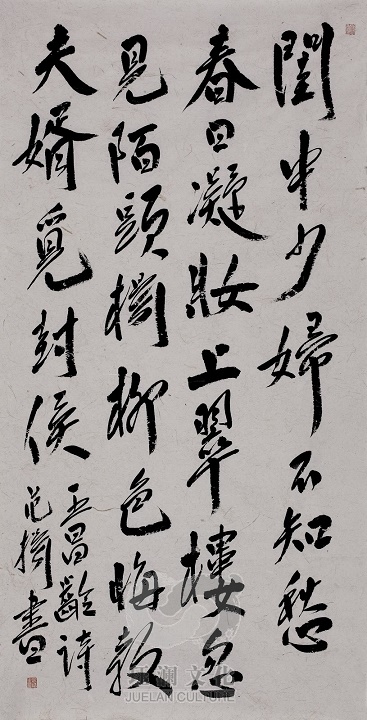 閨中少婦不知愁
春日凝妝上翠樓忽
見陌頭楊柳色悔教
夫婿覓封侯
王昌齡詩
范 書
澜文化
JUELAN CULTURE